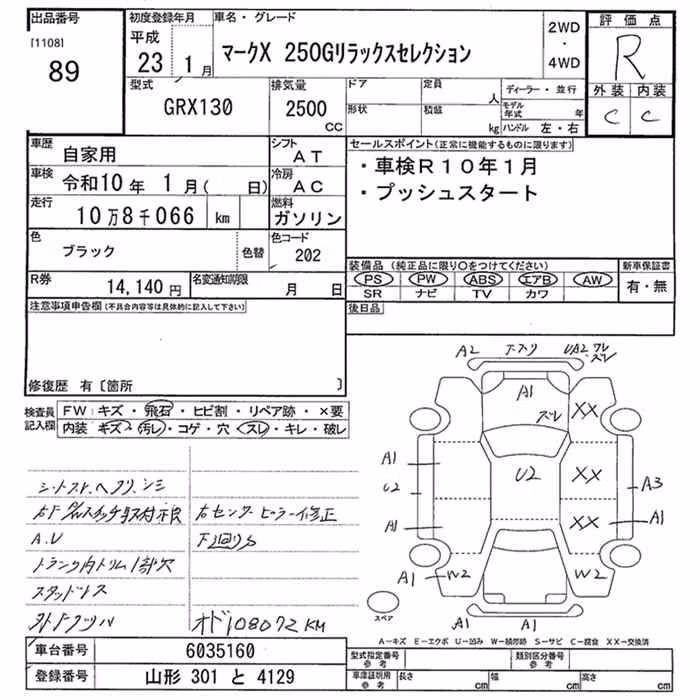 出品番号
[1108]
89
初度登録年月
平成
23 1月
車名・グレード
マークX 250Gリラックスセレクション
2WD
・
4WD
評価点
R
外装 内装
C C
型式
GRX130
排気量
2500
CC
ドア
形状
定員
人
積載
kg
ディーラー・並行
モデル年式 年
ハンドル 左・右
車歴
自家用
シフト
AT
車検
令和10年 1月( 日)
冷房
AC
走行
10万8千066 km
燃料
ガソリン
色
ブラック
色替
色コード
202
R券
14,140円
名変通知期限
月 日
セールスポイント(正常に機能するものに限ります)
・車検R10年1月
・プッシュスタート
装備品 (純正品に限り○をつけてください)
PS PW ABS エアB AW
SR ナビ TV カワ
新車保証書
有・無
後日品
注意事項申告欄(不具合内容等は具体的に記入して下さい)
修復歴 有〔箇所 〕
検査員記入欄
FW:キズ・飛石・ヒビ割・リペア跡・×要
内装 キズ・汚レ・コゲ・穴・スレ・キレ・破レ
シートスレ、ヘタリ、シミ
A.U
トランク内トリム1部穴
スタッドレス
右センターピラー修正
下廻りS
オド108072KM
A2
UA2
ワレ
ズレ
A1
ズレ
XX
A1
U2
A1
U2
XX
A3
XX
A1
A1
W2
W2
A1
A1
A1
スペア
A-キズ E-エクボ U-凹み W-補修跡 S-サビ C-腐食 XX-交換済
車台番号
6035160
登録番号
山形 301 と 4129
型式指定番号
参考
類別区分番号
参考
車庫証明用
参考
長さ cm
幅 cm
高さ cm